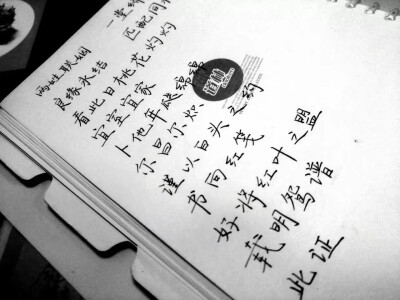 两姓联姻
一堂缔
良缘永结
匹配同
看此日桃花灼灼
宜室宜家
卜他年瓞绵绵
尔昌尔炽
谨以白头之约
书向红笺
好将红叶之盟
载明鸳谱
此证